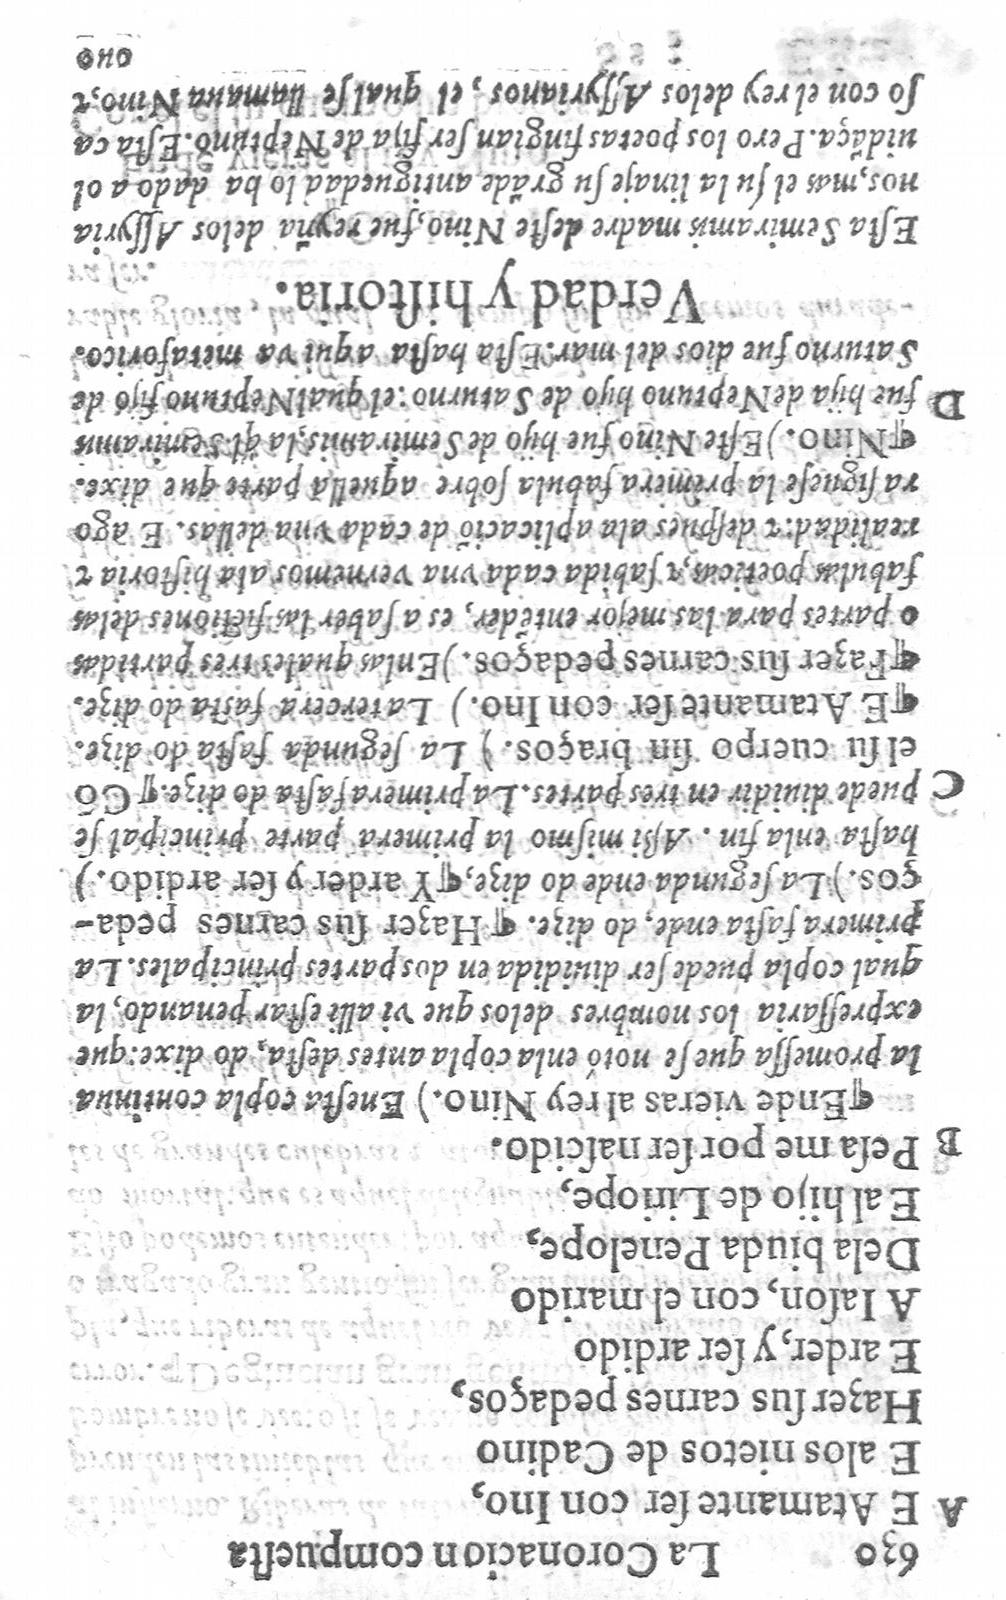 630 La Coronacion compuesta
A E Atamante ſer con Ino,
E alos nietos de Cadino
Hazer ſus carnes pedaços,
E arder, y ſer ardido
A Iaſon, con el marido
Dela biuda Penelope,
E al hijo de Liriope,
B Peſa me por ſer naſcido.
¶Ende vieras al rey Nino.) Eneſta copla continua
la promeſſa que ſe notó enla copla antes deſta, do dixe: que
expreſſaria los nombres delos que vi alli eſtar penando, la
qual copla puede ſer diuidida en dos partes principales. La
primera faſta ende, do dize. ¶Hazer ſus carnes peda-
ços.) La ſegunda ende do dize, ¶Y arder y ſer ardido.)
haſta enla fin. Aßi miſmo la primera parte principal ſe
C puede diuidir en tres partes. La primera faſta do dize. ¶Cõ
el ſu cuerpo ſin braços.) La ſegunda faſta do dize.
¶E Atamante ſer con Ino.) La tercera faſta do dize.
¶Fazer ſus carnes pedaços.) Enlas quales tres partidas
o partes para las mejor entẽder, es a ſaber las fictiones delas
fabulas poeticas, ⁊ ſabida cada vna vernemos ala hiſtoria ⁊
realidad: ⁊ deſpues ala aplicaciõ de cada vna dellas. E ago
ra ſigueſe la primera fabula ſobre aquella parte que dixe.
¶Nino.) Eſte Nino fue hijo de Semiramis, la ql̃ Semiramis
D fue hija de Neptuno hijo de Saturno: el qual Neptuno fijo de
Saturno fue dios del mar. Eſta haſta aqui va metaforico.
Verdad y hiſtoria.
Eſta Semiramis madre deſte Nino, fue reyna delos Aſſyria
nos, mas el ſu la linaje ſu grãde antiguedad lo ha dado a ol
uidãça. Pero los poetas fingian ſer fija de Neptuno. Eſta ca
ſo con el rey delos Aſſyrianos, el qual ſe llamaua Nino, ⁊
ouo